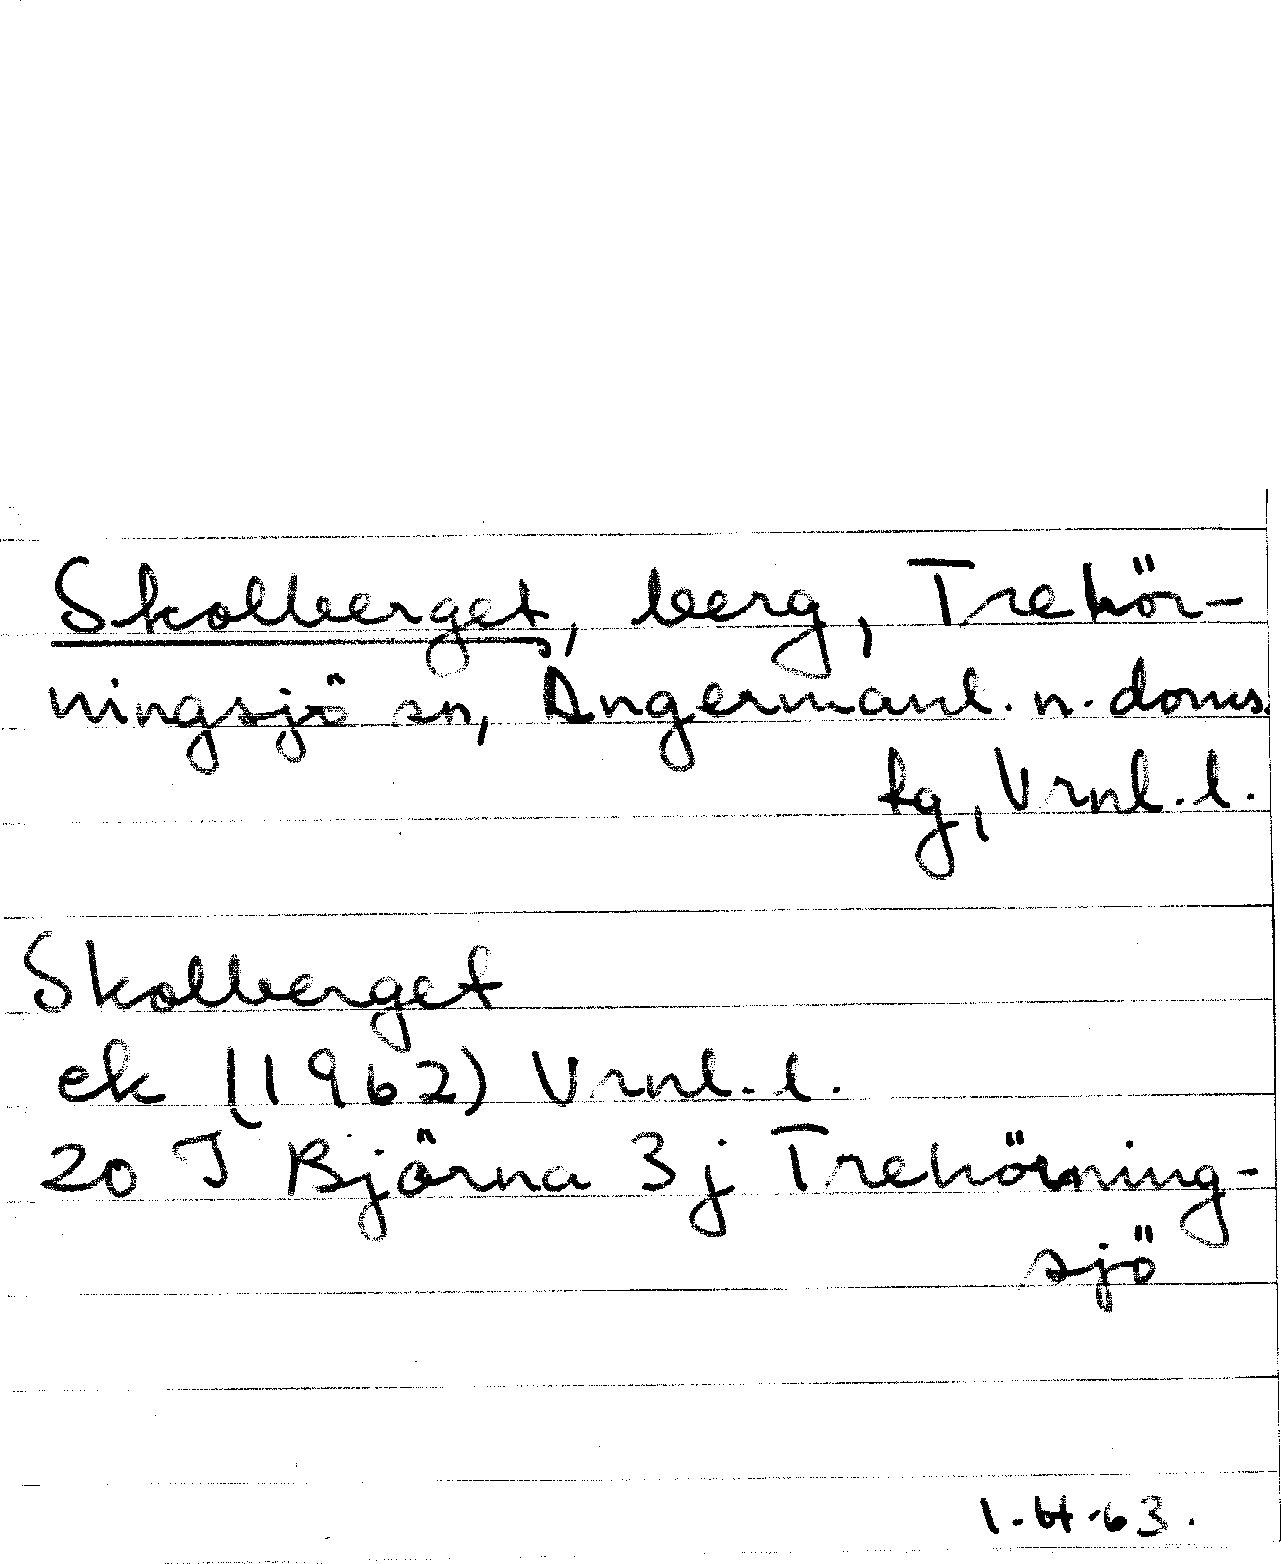 Skolberget, berg, Trehör-
ningsjö sn, Ångermanl. n. doms.
tg, Vrnl. l.
Skolberget
ek (1962) Vrnl. l.
20 J Björna 3j Trehörning-
sjö
I.H.63.